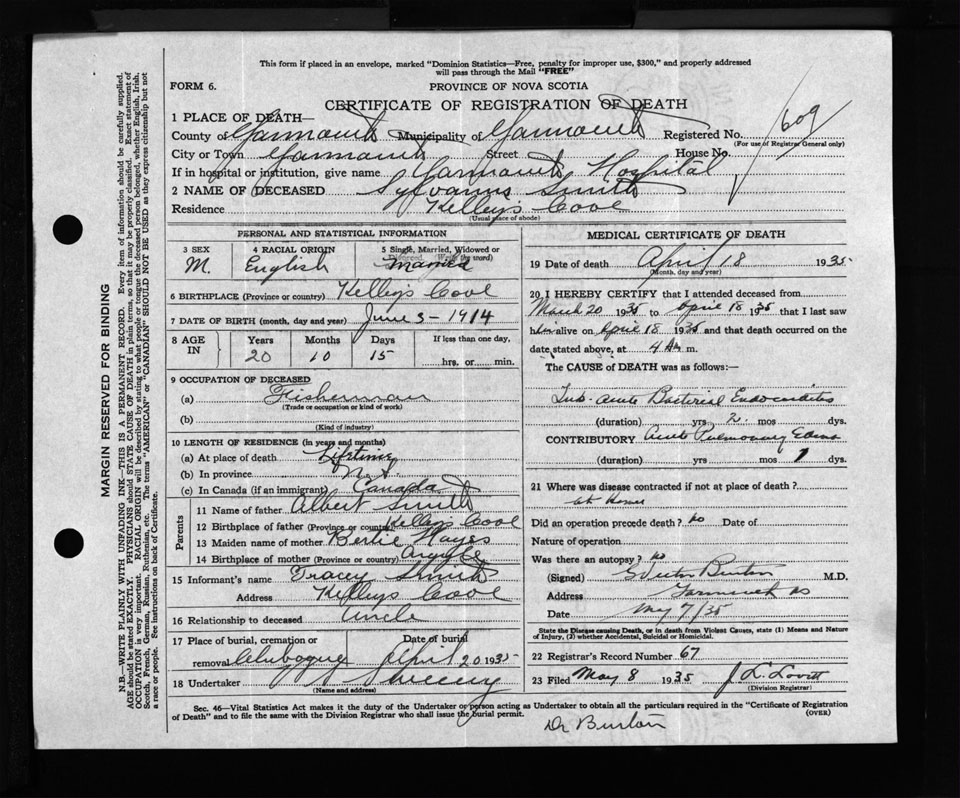 This form if placed in an envelope, marked "Dominion Statistics—Free, penalty for improper use, $300," and properly addressed
will pass through the Mail "FREE"
FORM 6.
PROVINCE OF NOVA SCOTIA
CERTIFICATE OF REGISTRATION OF DEATH
1 PLACE OF DEATH—
County of Yarmouth Municipality of Yarmouth Registered No. 609
(For use of Registrar General only)
City or Town Yarmouth Street House No.
If in hospital or institution, give name Yarmouth Hospital
2 NAME OF DECEASED Sylvanus Smith
Residence Kelley's Cove
(Usual place of abode)
PERSONAL AND STATISTICAL INFORMATION
3 SEX 4 RACIAL ORIGIN 5 Single, Married, Widowed or
Divorced (Write the word)
M. English Married
6 BIRTHPLACE (Province or country) Kelley's Cove
7 DATE OF BIRTH (month, day and year) June 3 - 1914
8 AGE IN Years Months Days If less than one day,
20 10 15 hrs. or min.
9 OCCUPATION OF DECEASED
(a) Fisherman
(Trade or occupation or kind of work)
(b)
(Kind of industry)
10 LENGTH OF RESIDENCE (in years and months)
(a) At place of death Lifetime
(b) In province N.S.
(c) In Canada (if an immigrant) Canada
Parents
11 Name of father Albert Smith
12 Birthplace of father (Province or country) Kelleys Cove
13 Maiden name of mother Bertie Hayes
14 Birthplace of mother (Province or country) Argyle
15 Informant's name Tracey Smith
Address Kelleys Cove
16 Relationship to deceased Uncle
17 Place of burial, cremation or Date of burial
removal Chebogue April 20 1935
18 Undertaker Sweeny
(Name and address)
MEDICAL CERTIFICATE OF DEATH
19 Date of death April 18 1935
(Month, day and year)
20 I HEREBY CERTIFY that I attended deceased from
March 20 1935 to April 18 1935 that I last saw
him alive on April 18 1935 and that death occurred on the
date stated above, at 4 Am m.
The CAUSE of DEATH was as follows:—
Sub-acute Bacterial Endocarditis
(duration) yrs 2 mos dys.
CONTRIBUTORY Acute Pulmonary Edema
(duration) yrs mos 1 dys.
21 Where was disease contracted if not at place of death?
at Home
Did an operation precede death? no Date of
Nature of operation
Was there an autopsy? no
(Signed) Burton M.D.
Address Yarmouth NS
Date May 7/35
State the Disease causing Death, or in death from Violent Causes, state (1) Means and Nature
of Injury, (2) whether Accidental, Suicidal or Homicidal.
22 Registrar's Record Number 67
23 Filed May 8 1935 J. L. Lovitt
(Division Registrar)
Sec. 46—Vital Statistics Act makes it the duty of the Undertaker or person acting as Undertaker to obtain all the particulars required in the "Certificate of Registration
of Death" and to file the same with the Division Registrar who shall issue the burial permit.
(OVER)
Dr Burton
MARGIN RESERVED FOR BINDING
N.B.—WRITE PLAINLY WITH UNFADING INK—THIS IS A PERMANENT RECORD. Every item of information should be carefully supplied.
AGE should be stated EXACTLY. PHYSICIANS should STATE CAUSE OF DEATH in plain terms, so that it may be properly classified. Exact statement of
OCCUPATION is very important. RACIAL ORIGIN will be described by stating to what people or tongue the deceased person belonged, whether English, Irish,
Scotch, French, German, Russian, Ruthenian, etc. The terms "AMERICAN" or "CANADIAN" SHOULD NOT BE USED as they express citizenship but not
a race or people. See instructions on back of Certificate.